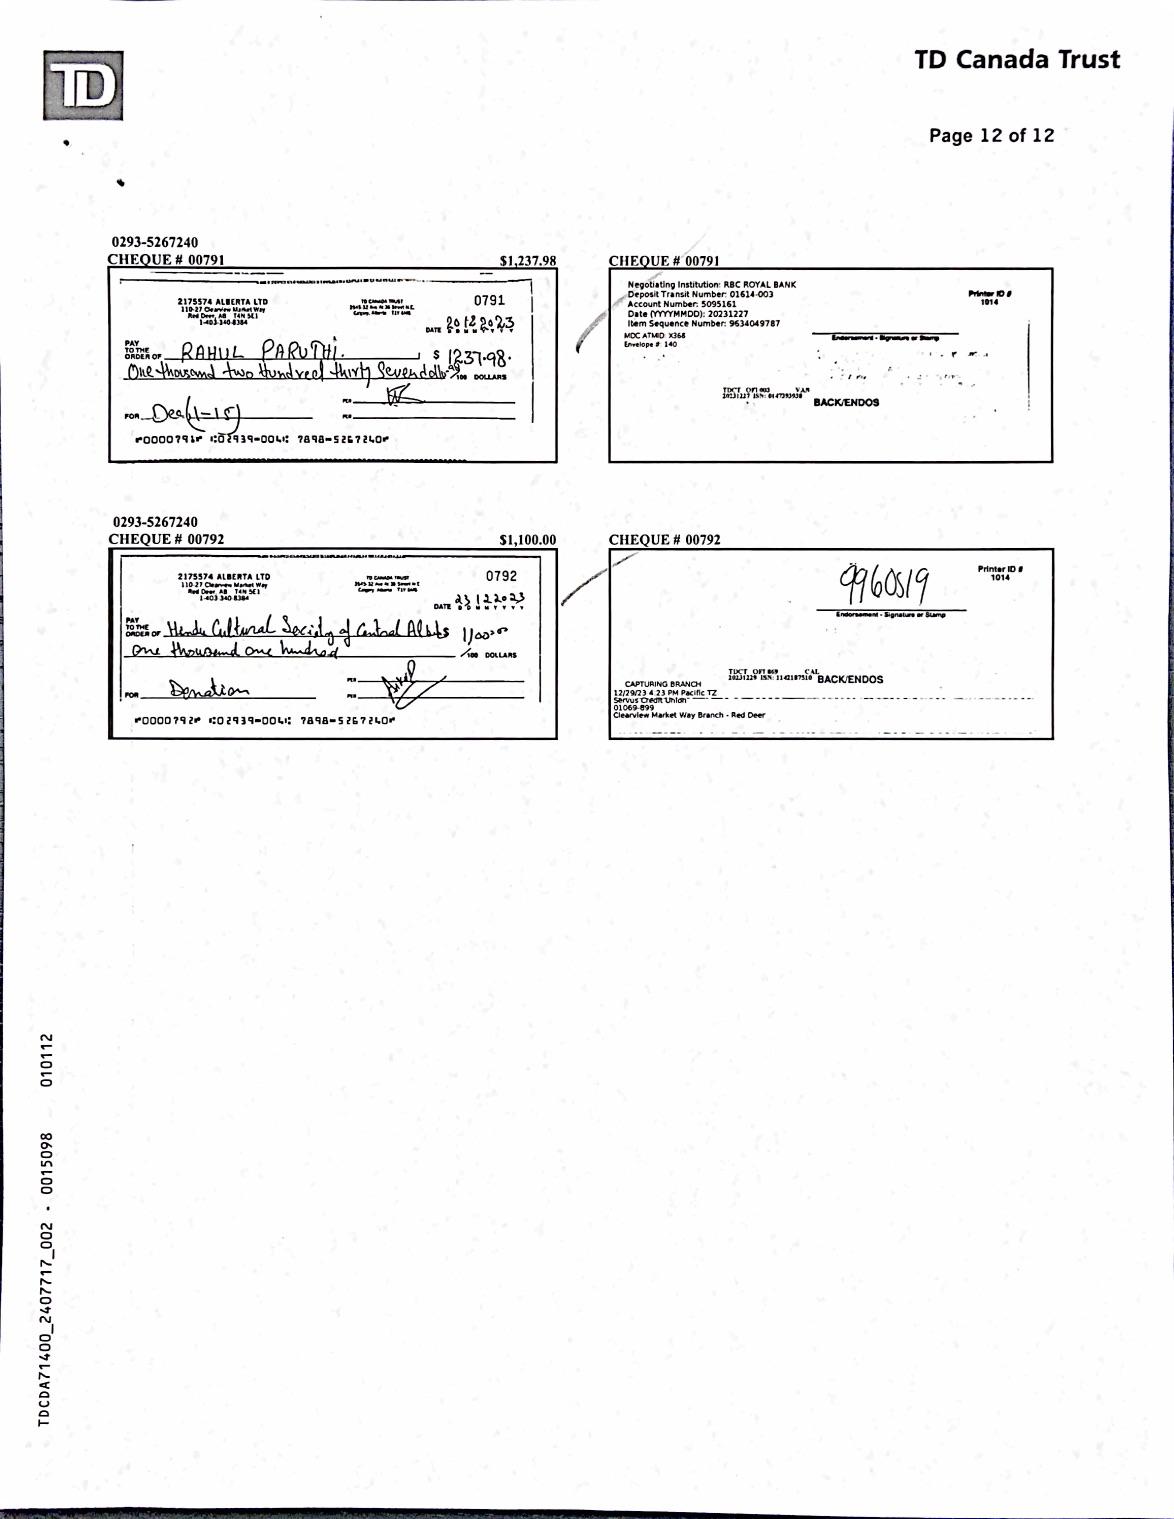 TD
TD Canada Trust
Page 12 of 12
0293-5267240
CHEQUE # 00791 $1,237.98
2175574 ALBERTA LTD
110-27 Clearview Market Way
Red Deer, AB T4N 5E1
1-403-340-8384
TD CANADA TRUST
0791
DATE 20122023
D D M M Y Y Y Y
PAY
TO THE
ORDER OF RAHUL PARUTHI. $ 1237.98.
One thousand two Hundred thirty Seven dollars 98/100 DOLLARS
PER
FOR Dec(1-15) PER
⑈0000791⑈ ⑆02939⑉004⑆ 7898⑉5267240⑈
CHEQUE # 00791
Negotiating Institution: RBC ROYAL BANK
Deposit Transit Number: 01614-003
Account Number: 5095161
Date (YYYYMMDD): 20231227
Item Sequence Number: 9634049787
MDC ATMID: X368
Envelope #: 140
Printer ID #
1014
Endorsement - Signature or Stamp
TDCT OFI 003 VAN
20231227 ISN: 0147393938
BACK/ENDOS
0293-5267240
CHEQUE # 00792 $1,100.00
2175574 ALBERTA LTD
110-27 Clearview Market Way
Red Deer, AB T4N 5E1
1-403 340 8384
TD CANADA TRUST
0792
DATE 23122023
D D M M Y Y Y Y
PAY
TO THE
ORDER OF Hindu Cultural Society of Central Alberta 1100.00
One thousand one hundred /100 DOLLARS
PER
FOR Donation PER
⑈0000792⑈ ⑆02939⑉004⑆ 7898⑉5267240⑈
CHEQUE # 00792
9960519
Endorsement - Signature or Stamp
Printer ID #
1014
TDCT OFI 869 CAL
20231229 ISN: 1142187510
BACK/ENDOS
CAPTURING BRANCH
12/29/23 4:23 PM Pacific TZ
Servus Credit Union
01069-899
Clearview Market Way Branch - Red Deer
TDCDA71400_2407717_002 - 0015098 010112